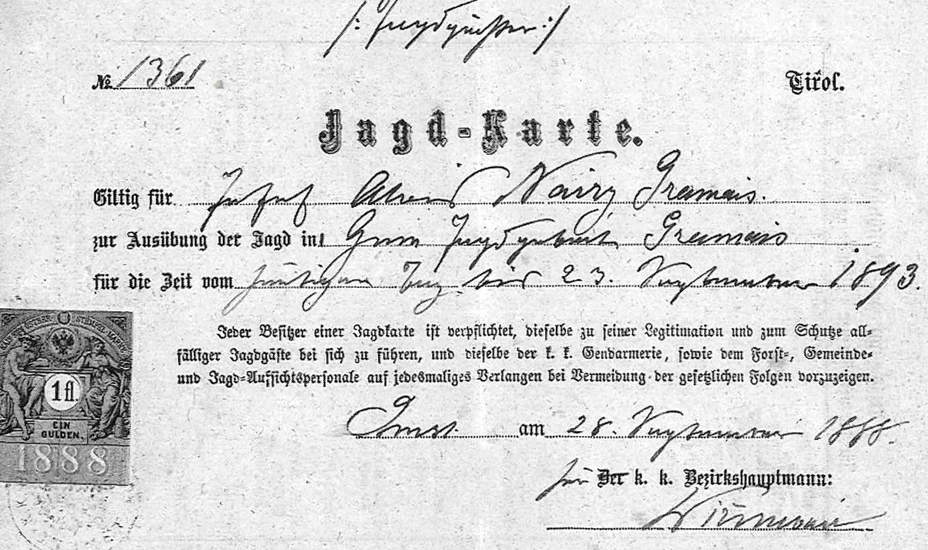 /: Jagdpächter :/
№ 1361 Tirol.
Jagd-Karte.
Giltig für Josef Alois Nairz Gramais.
zur Ausübung der Jagd in Gramais
für die Zeit vom heutigen Tag bis 23. September 1893.
Jeder Besitzer einer Jagdkarte ist verpflichtet, dieselbe zu seiner Legitimation und zum Schutze all-
fälliger Jagdgäste bei sich zu führen, und dieselbe der k. k. Gendarmerie, sowie dem Forst-, Gemeinde-
und Jagd-Aufsichtspersonale auf jedesmaliges Verlangen bei Vermeidung der gesetzlichen Folgen vorzuzeigen.
1 fl.
EIN
GULDEN.
1888
Imst am 28. September 1888.
für Der k. k. Bezirkshauptmann: